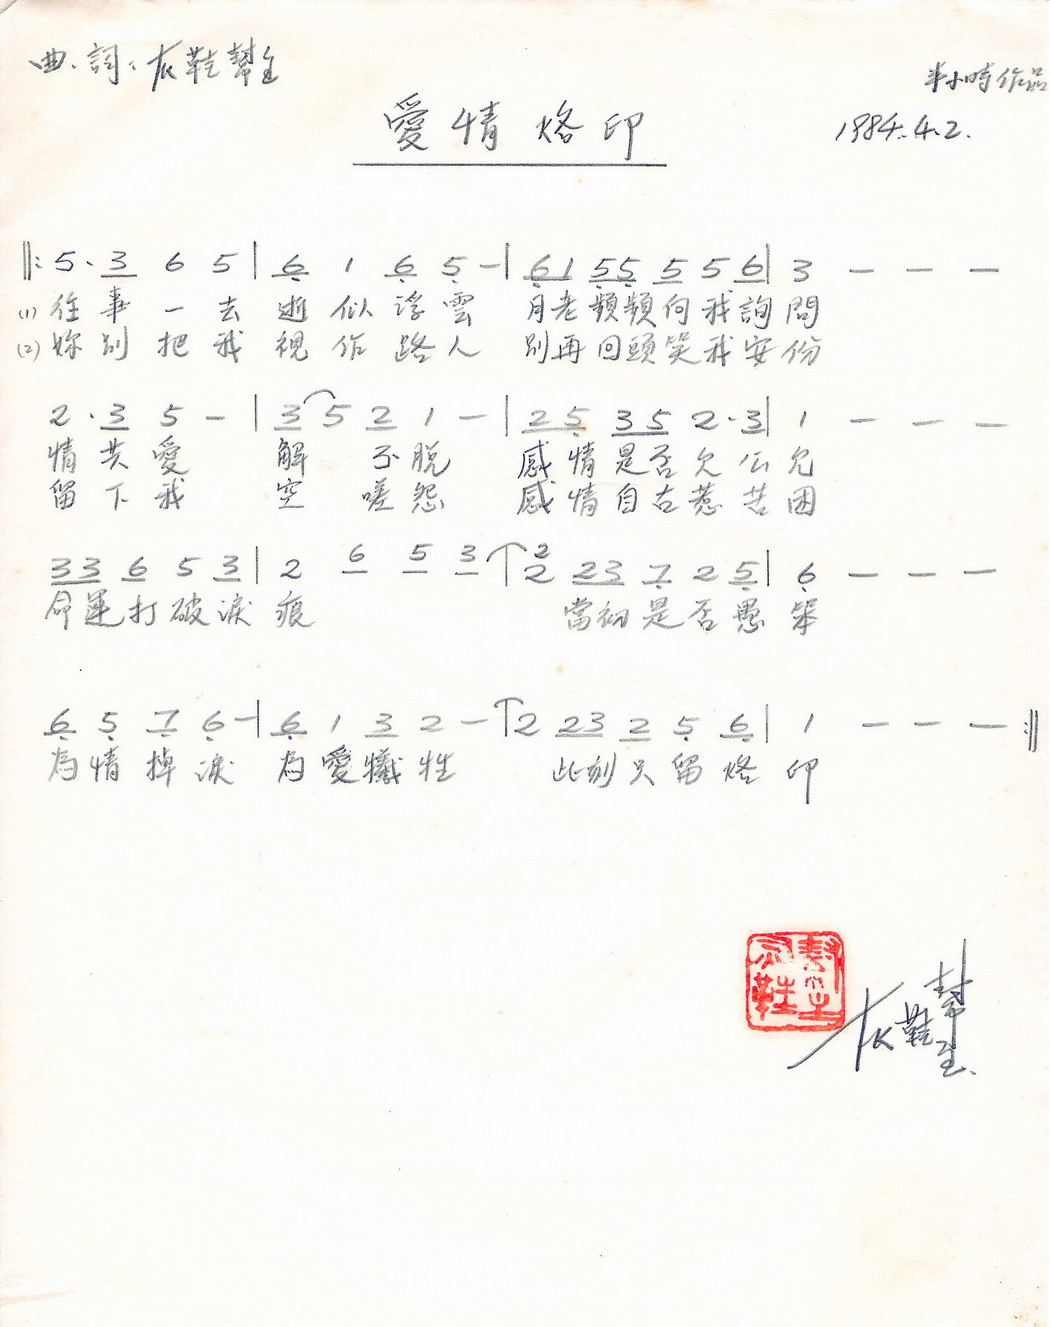 曲.詞:灰鞋幫主
半小時作品
愛情烙印
1984.4.2.
‖: 5 · 3 6 5 | 6 1 6 5 — | 61 55 5 5 6 | 3 — — —
(1) 往事一去 逝似浮雲 月老頻頻向我詢問
(2) 妳別把我 視作路人 別再回頭笑我安份
2 · 3 5 — | 3 5 2 1 — | 2 5 35 2 · 3 | 1 — — —
情共愛 解不脫 感情是否欠公允
留下我 空嗟怨 感情自古惹苦困
33 6 5 3 | 2 6 5 3 | 2 2 23 7 2 5 | 6 — — —
命運打破淚痕 當初是否愚笨
6 5 7 6 — | 6 1 3 2 — | 2 23 2 5 6 | 1 — — — :‖
為情掉淚 為愛犧牲 此刻只留烙印
灰鞋幫主
灰鞋幫主